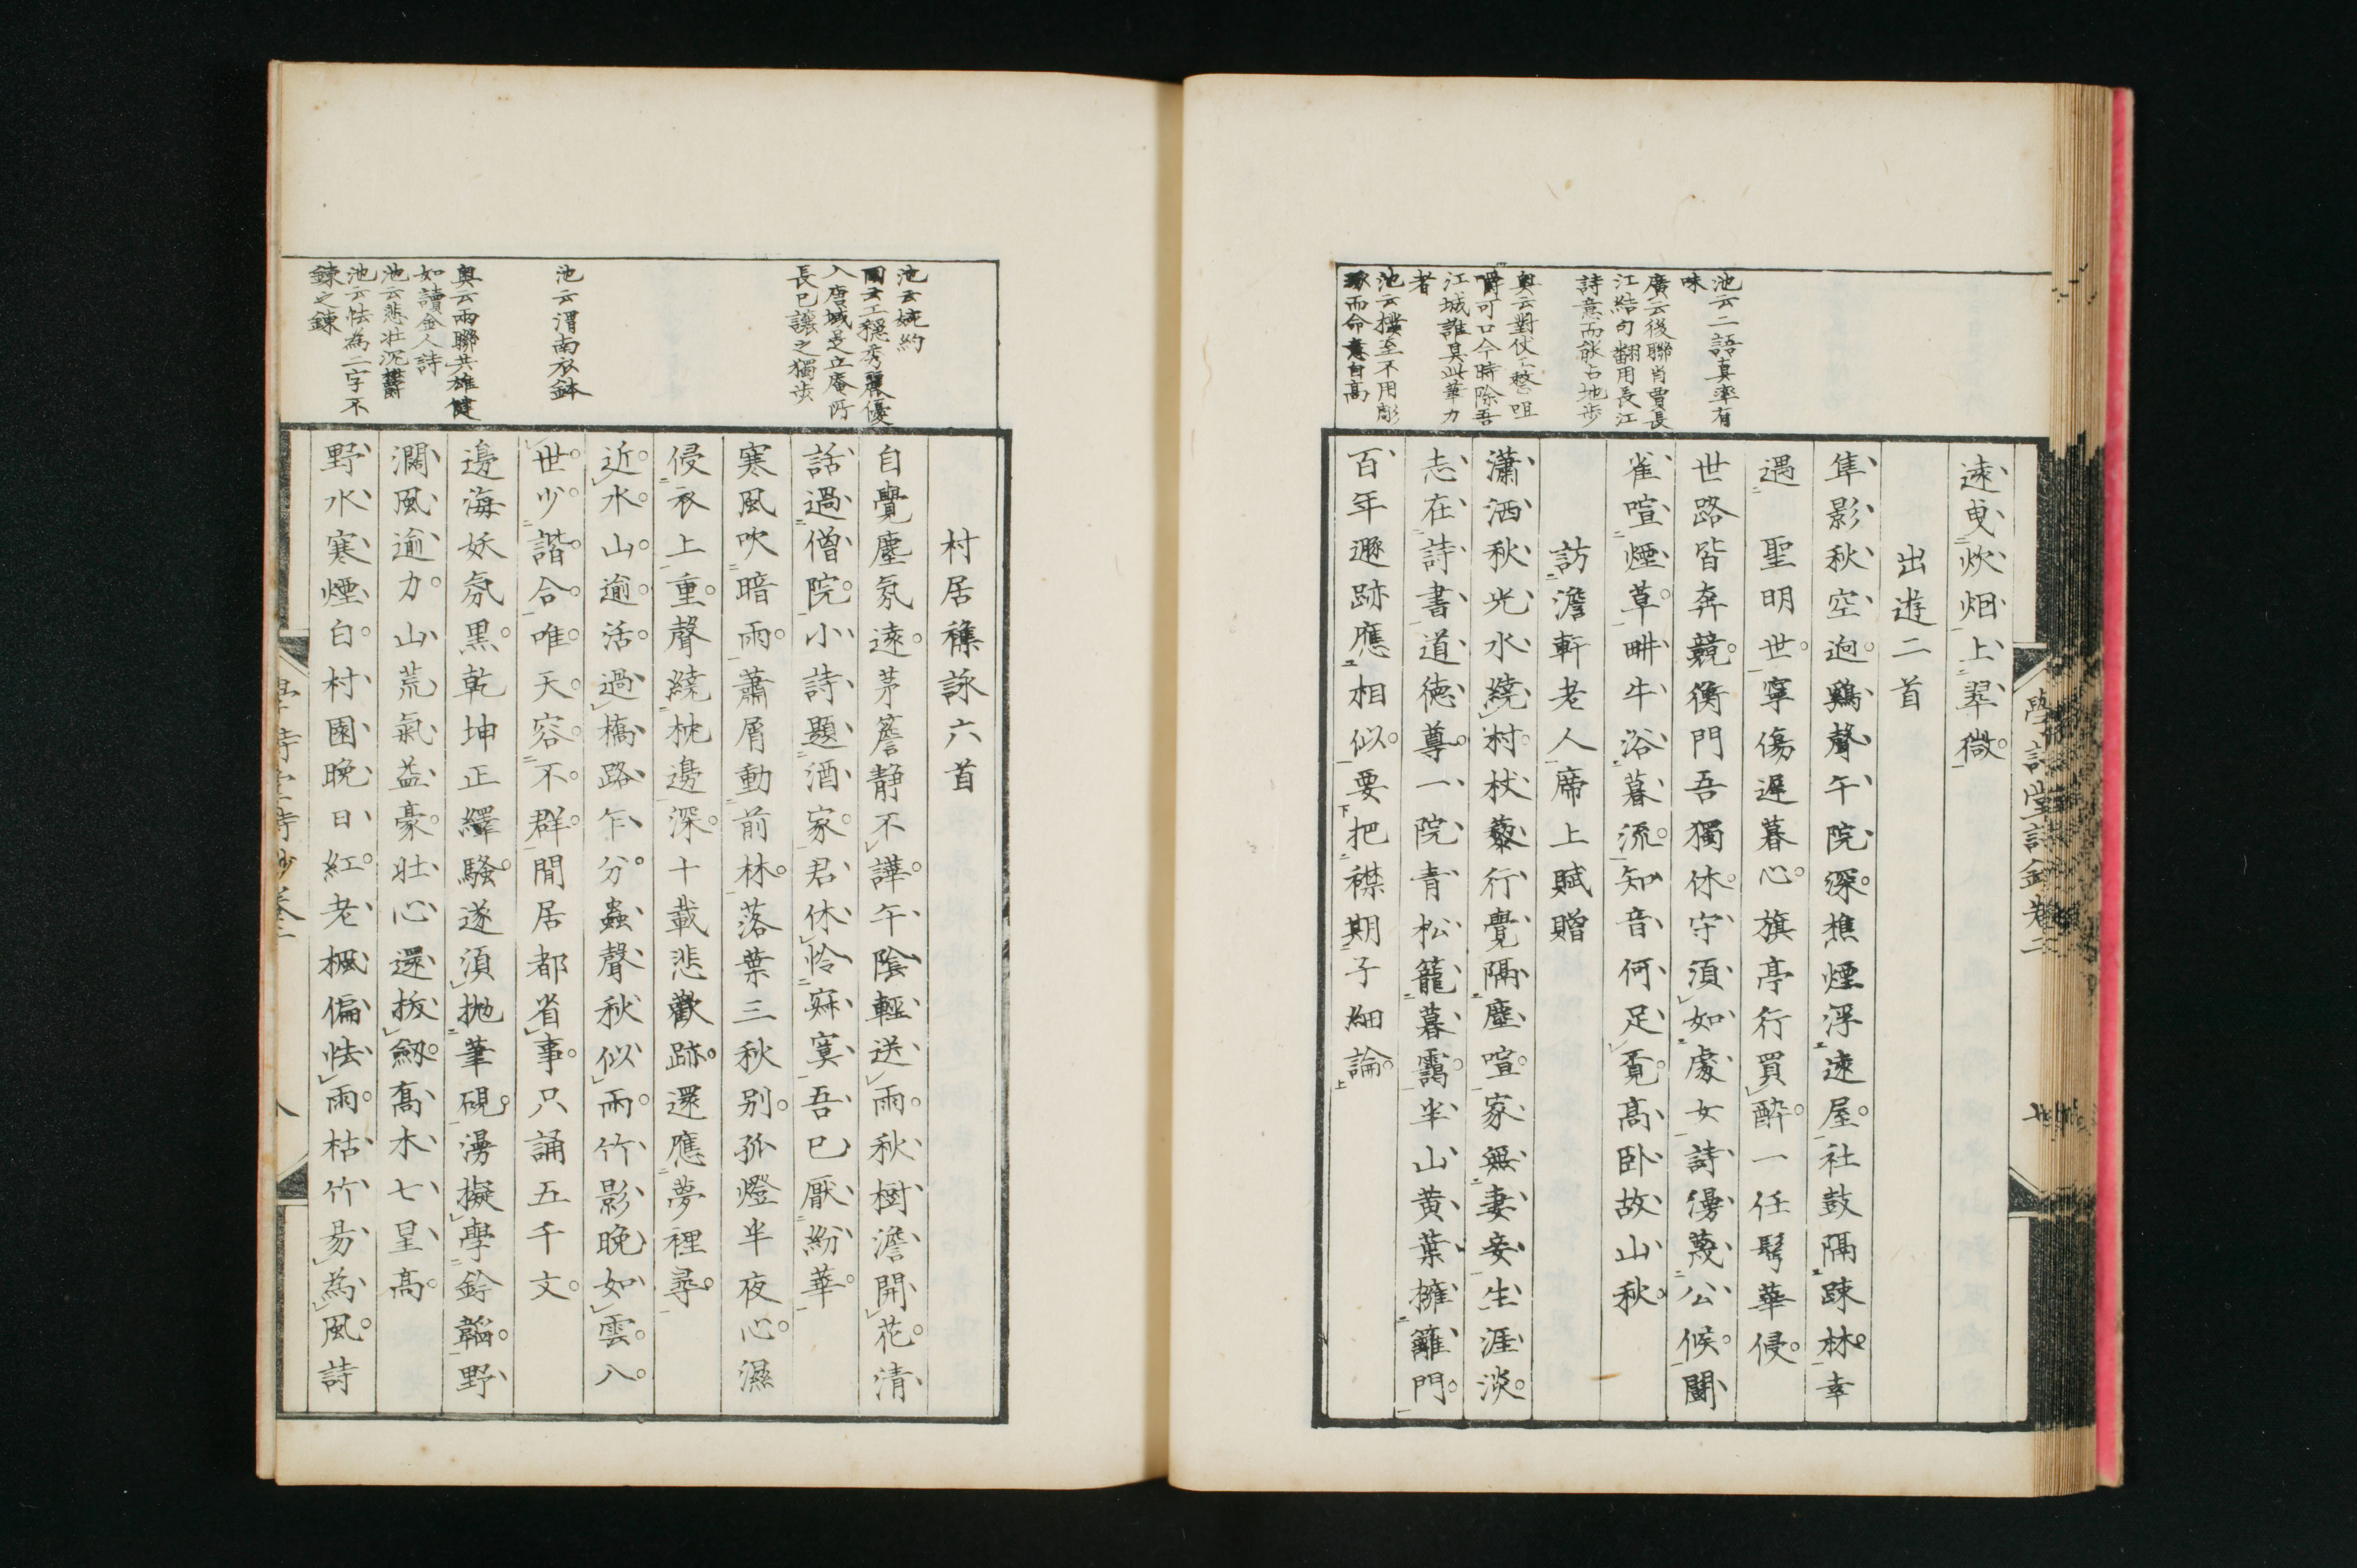 遠曳炊烟上翠微
出遊二首
隼影秋空逈鷄聲午院深樵煙浮遠屋社鼓隔疎林幸
遇聖明世寧傷遲暮心旗亭行買醉一任鬂華侵
世路皆奔競衡門吾獨休守須如處女詩漫蔑公候鬪
雀喧煙草畊牛浴暮流知音何足覔高臥故山秋
訪澹軒老人席上賦贈
瀟洒秋光水繞村杖藜行覺隔塵喧家無妻妾生涯淡
志在詩書道徳尊一院青松籠暮靄半山黄葉擁籬門
百年遯跡應相似要把襟期子細論
池云二語真率有
味
廣云後聯肖賈長
江結句翻用長江
詩意而能占地歩
奥云對仗工整咀
嚼可口今時除吾
江城誰具此筆力
者
池云樸至不用彫
琢而命意自高
學詩堂詩鈔卷二
七
村居襍詠六首
自覺塵氛遠茅簷静不譁午陰輕送雨秋樹澹開花清
話過僧院小詩題酒家君休怜寂寞吾已厭紛華
寒風吹暗雨蕭屑動前林落葉三秋别孤燈半夜心濕
侵衣上重聲繞枕邊深十載悲歡跡還應夢裡尋
近水山逾活過橋路乍分蟲聲秋似雨竹影晩如雲入
世少諧合唯天容不群閒居都省事只誦五千文
邊海妖氛黒乾坤正繹騷遂須抛筆硯漫擬學鈐韜野
濶風逾力山荒氣益豪壮心還拔劔髙木七星髙
野水寒煙白村園晩日紅老楓偏怯雨枯竹易為風詩
池云婉約
国云工穏秀麗優
入唐域是立庵所
長已讓之獨歩
池云渭南衣鉢
奥云兩聯共雄健
如讀金人詩
池云悲壮沉欝
池云怯為二字不
錬之錬
學詩堂詩鈔卷二
八